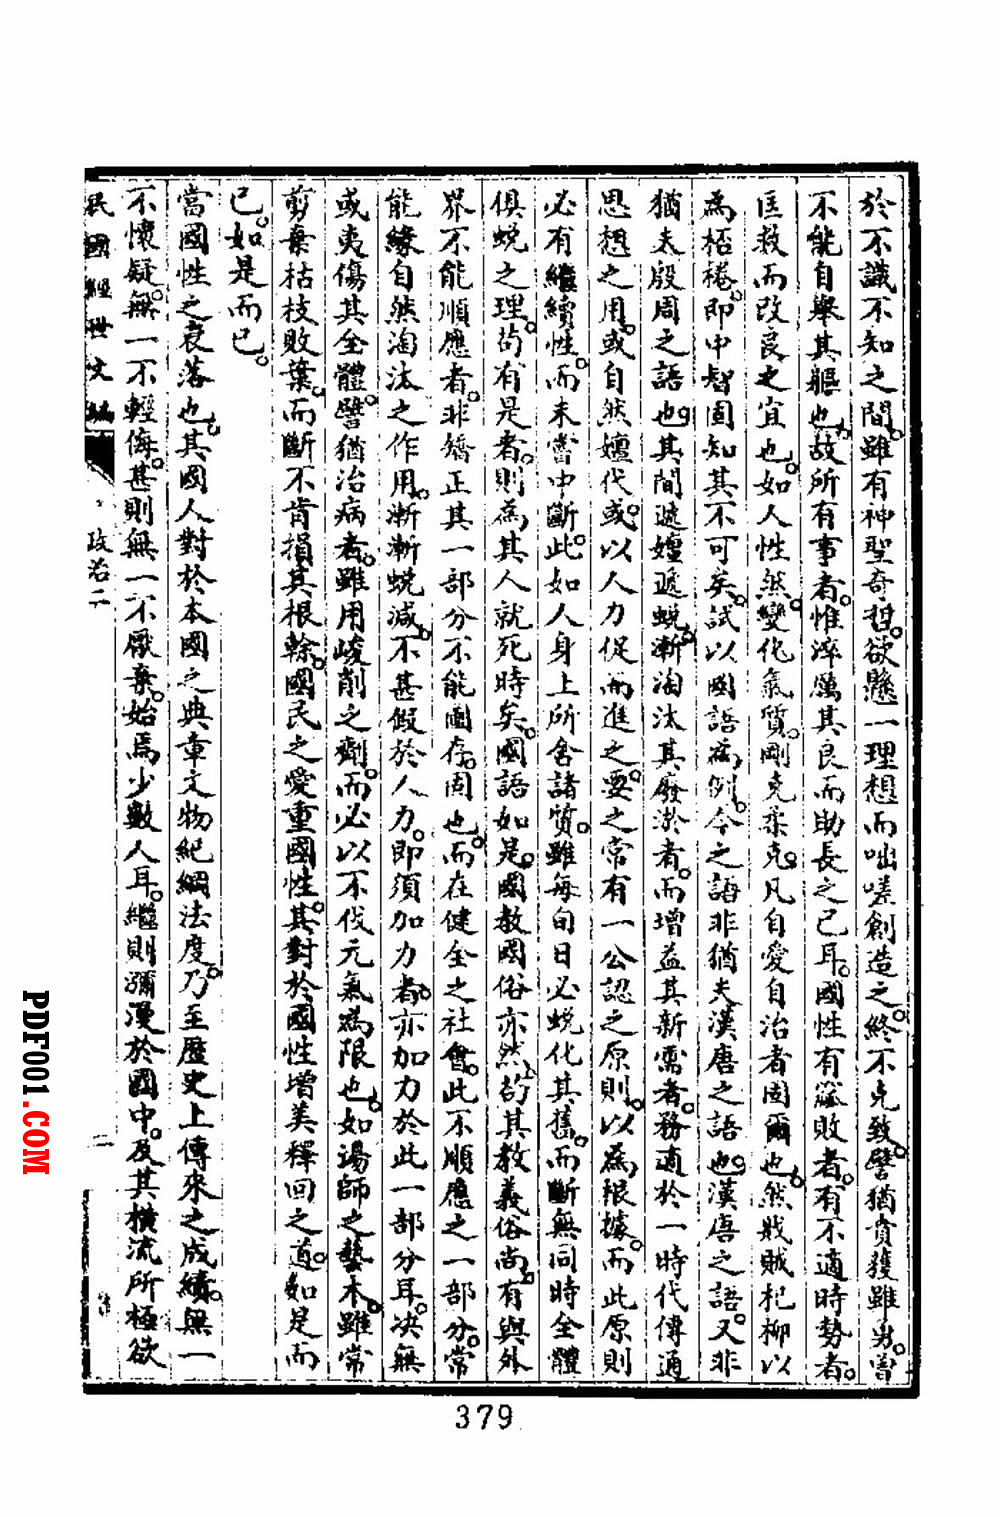 於不識不知之間。雖有神聖奇哲。欲懸一理想而咄嗟創造之。終不克致。譬猶賁獲雖勇。曾
不能自舉其軀也。故所有事者。惟淬厲其良而助長之已耳。國性有窳敗者。有不適時勢者。
匡救而改良之宜也。如人性然。變化氣質。剛克柔克。凡自愛自治者固爾也。然戕賊杞柳以
為桮棬。即中智固知其不可矣。試以國語為例。今之語非猶夫漢唐之語也。漢唐之語。又非
猶夫殷周之語也。其間遞嬗遞蛻。漸淘汰其廢淤者。而增益其新需者。務適於一時代傳通
思想之用。或自然嬗代。或以人力促而進之。要之常有一公認之原則。以為根據。而此原則
必有繼續性。而未嘗中斷。此如人身上所含諸質。雖每旬日必蛻化其舊。而斷無同時全體
俱蛻之理。苟有是者。則為其人就死時矣。國語如是。國教國俗亦然。苟其教義俗尚。有與外
界不能順應者。非矯正其一部分不能圖存。固也。而在健全之社會。此不順應之一部分。常
能緣自然淘汰之作用。漸漸蛻減。不甚假於人力。即須加力者。亦加力於此一部分耳。決無
或夷傷其全體。譬猶治病者。雖用峻削之劑。而必以不伐元氣為限也。如湯師之藝木。雖常
剪棄枯枝敗葉。而斷不肯損其根榦。國民之愛重國性。其對於國性增美釋回之道。如是而
已。如是而已。
當國性之衰落也。其國人對於本國之典章文物紀綱法度。乃至歷史上傳來之成績。無一
不懷疑。無一不輕侮。甚則無一不厭棄。始焉少數人耳。繼則瀰漫於國中。及其橫流所極。欲
民國經世文編
政治二
二
379
PDF001.COM